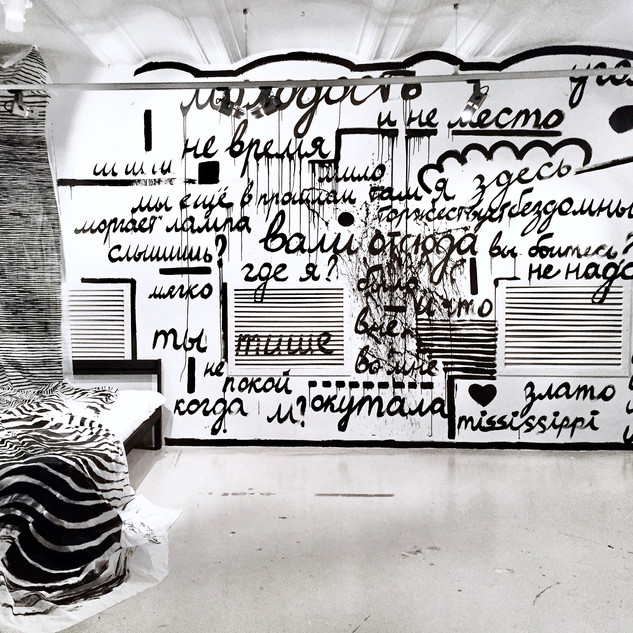 молодость
и не место
не время
шшш мило
я здесь
мы ещё в прошлом там
моргает лампа торжествует бездомны
слышишь? вали отсюда вы боитесь?
где я? было не надо
мягко и что
ты тише вне
во мне
не
покой
когда м? окутала злато
mississippi